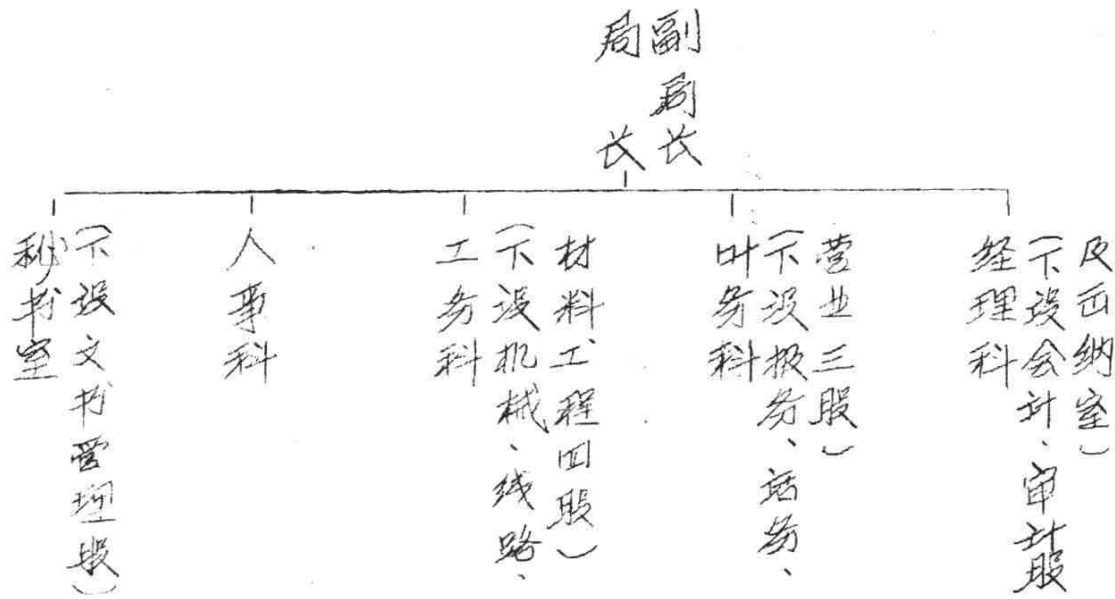 局长
副局长
秘书室
(下设文书管理股)
人事科
工务科
(下设机械、线路、
材料工程四股)
叶务科
(下设报务、话务、
营业三股)
经理科
(下设会计、审计股
及出纳室)